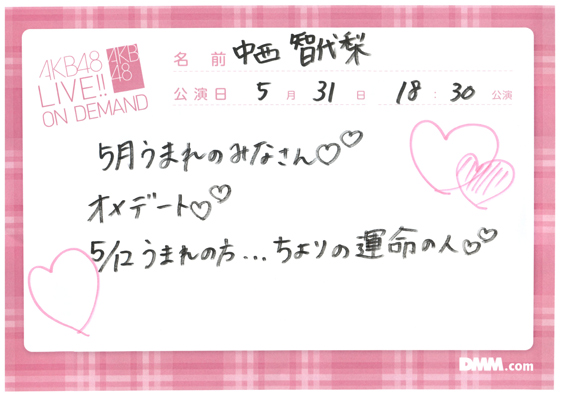 AKB48
LIVE!!
ON DEMAND
AKB
48
名前 中西 智代梨
公演日 5月 31日 18:30 公演
5月うまれのみなさん♡♡
オメデート♡♡
5/12うまれの方...ちよりの運命の人♡♡
DMM.com